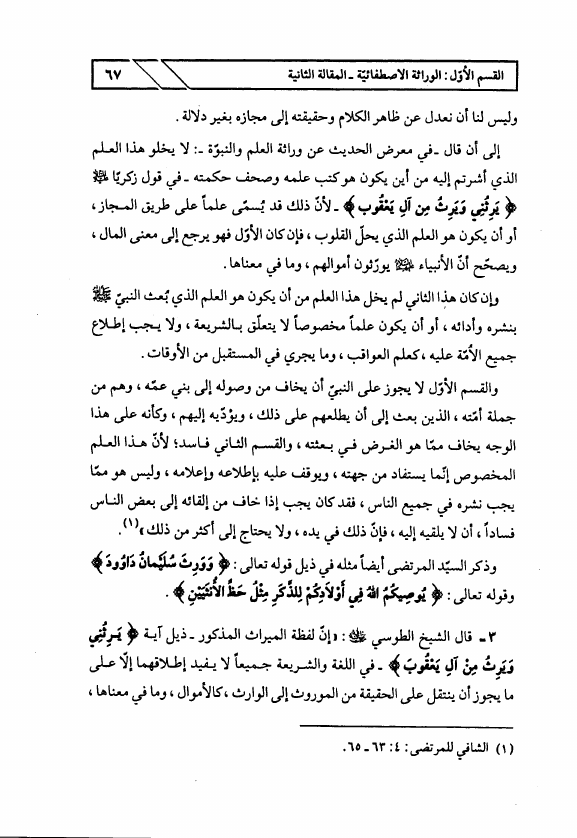 القسم الأوّل : الوراثة الاصطفائيّة ـ المقالة الثانية
٦٧
وليس لنا أن نعدل عن ظاهر الكلام وحقيقته إلى مجازه بغير دلالة .
إلى أن قال ـ في معرض الحديث عن وراثة العلم والنبوّة ـ: لا يخلو هذا العلم
الذي أشرتم إليه من أين يكون هو كتب علمه وصحف حكمته ـ في قول زكريّا ﷺ
﴿ يَرِثُنِي وَيَرِثُ مِن آلِ يَعْقُوب ﴾ ـ لأنّ ذلك قد يُسمّى علماً على طريق المجاز ،
أو أن يكون هو العلم الذي يحلّ القلوب ، فإن كان الأوّل فهو يرجع إلى معنى المال ،
ويصحّح أنّ الأنبياء يورّثون أموالهم ، وما في معناها .
وإن كان هذا الثاني لم يخل هذا العلم من أن يكون هو العلم الذي بُعث النبيّ ﷺ
بنشره وأدائه ، أو أن يكون علماً مخصوصاً لا يتعلّق بالشريعة ، ولا يجب إطلاع
جميع الأمّة عليه ، كعلم العواقب ، وما يجري في المستقبل من الأوقات .
والقسم الأوّل لا يجوز على النبيّ أن يخاف من وصوله إلى بني عمّه ، وهم من
جملة أمّته ، الذين بعث إلى أن يطلعهم على ذلك ، ويؤدّيه إليهم ، وكأنه على هذا
الوجه يخاف ممّا هو الغرض في بعثته ، والقسم الثاني فاسد؛ لأنّ هذا العلم
المخصوص إنّما يستفاد من جهته ، ويوقف عليه بإطلاعه وإعلامه ، وليس هو ممّا
يجب نشره في جميع الناس ، فقد كان يجب إذا خاف من إلقائه إلى بعض الناس
فساداً ، أن لا يلقيه إليه ، فإنّ ذلك في يده ، ولا يحتاج إلى أكثر من ذلك »(١).
وذكر السيّد المرتضى أيضاً مثله في ذيل قوله تعالى : ﴿ وَوَرِثَ سُلَيْمانُ دَاوُودَ ﴾
وقوله تعالى : ﴿ يُوصِيكُمُ اللهُ فِي أَوْلَادِكُمْ لِلذَّكَرِ مِثْلُ حَظِّ الْأُنْثَيَيْنِ ﴾ .
٣ ـ قال الشيخ الطوسي : «إنّ لفظة الميراث المذكور ـ ذيل آية ﴿ يَرِثُنِي
وَيَرِثُ مِنْ آلِ يَعْقُوبَ ﴾ ـ في اللغة والشريعة جميعاً لا يفيد إطلاقهما إلّا على
ما يجوز أن ينتقل على الحقيقة من الموروث إلى الوارث ،كالأموال ، وما في معناها ،
(١) الشافي للمرتضى : ٤: ٦٣ ـ ٦٥.